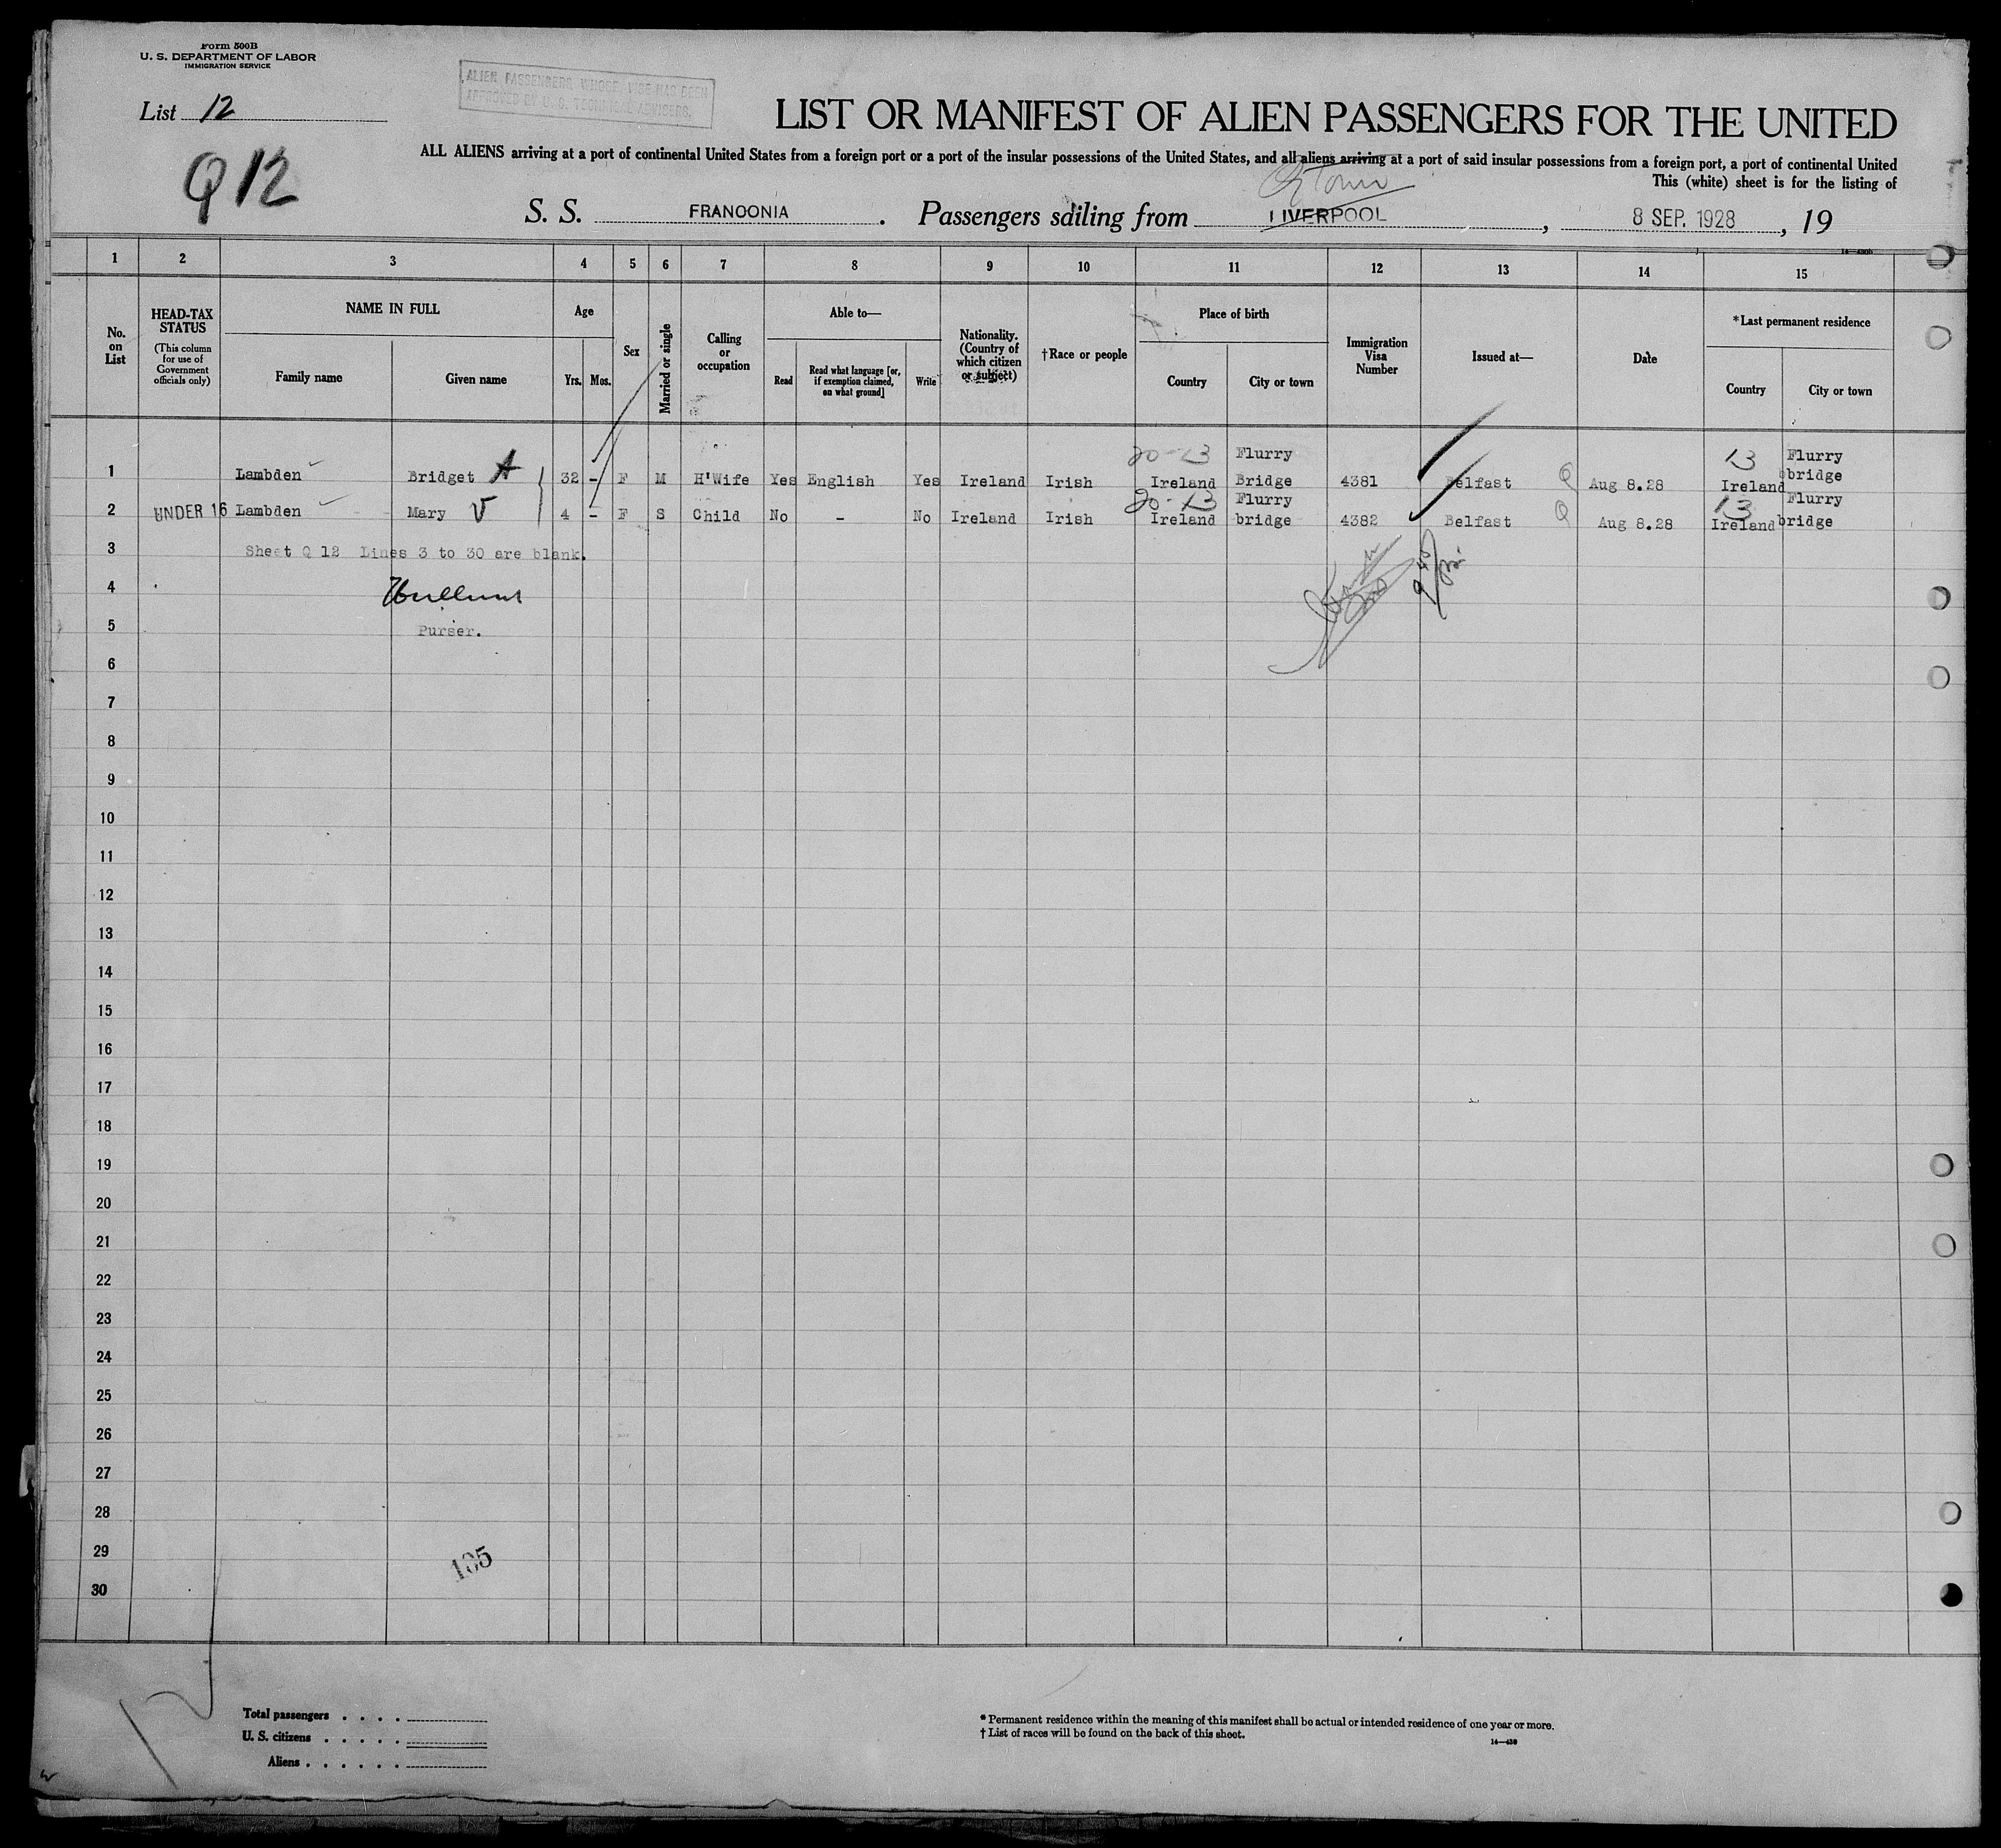 Form 500B
U. S. DEPARTMENT OF LABOR
IMMIGRATION SERVICE
ALIEN PASSENGERS WHOSE VISE HAS BEEN
APPROVED BY U.S. TECHNICAL ADVISERS.
List 12
Q12
LIST OR MANIFEST OF ALIEN PASSENGERS FOR THE UNITED
ALL ALIENS arriving at a port of continental United States from a foreign port or a port of the insular possessions of the United States, and all aliens arriving at a port of said insular possessions from a foreign port, a port of continental United
This (white) sheet is for the listing of
Qtown
S. S. FRANCONIA. Passengers sailing from LIVERPOOL, 8 SEP. 1928, 19
14—430b
1 2 3 4 5 6 7 8 9 10 11 12 13 14 15
No. on List
HEAD-TAX STATUS (This column for use of Government officials only)
NAME IN FULL
Family name Given name
Age
Yrs. Mos.
Sex
Married or single
Calling or occupation
Able to—
Read Read what language [or, if exemption claimed, on what ground] Write
Nationality. (Country of which citizen or subject)
†Race or people
Place of birth
Country City or town
Immigration Visa Number
Issued at—
Date
*Last permanent residence
Country City or town
20-13 Flurry 13 Flurry
1 Lambden Bridget A 32 - F M H'Wife Yes English Yes Ireland Irish Ireland Bridge 4381 Belfast Q Aug 8.28 Ireland bridge
20-13 Flurry 13 Flurry
2 UNDER 16 Lambden Mary V 4 - F S Child No - No Ireland Irish Ireland bridge 4382 Belfast Q Aug 8.28 Ireland bridge
3 Sheet Q 12 Lines 3 to 30 are blank.
4
5 Purser.
6
7
8
9
10
11
12
13
14
15
16
17
18
19
20
21
22
23
24
25
26
27
28
29
30
Total passengers . . . .
U. S. citizens . . . . .
Aliens . . . . . .
* Permanent residence within the meaning of this manifest shall be actual or intended residence of one year or more.
† List of races will be found on the back of this sheet.
14—430